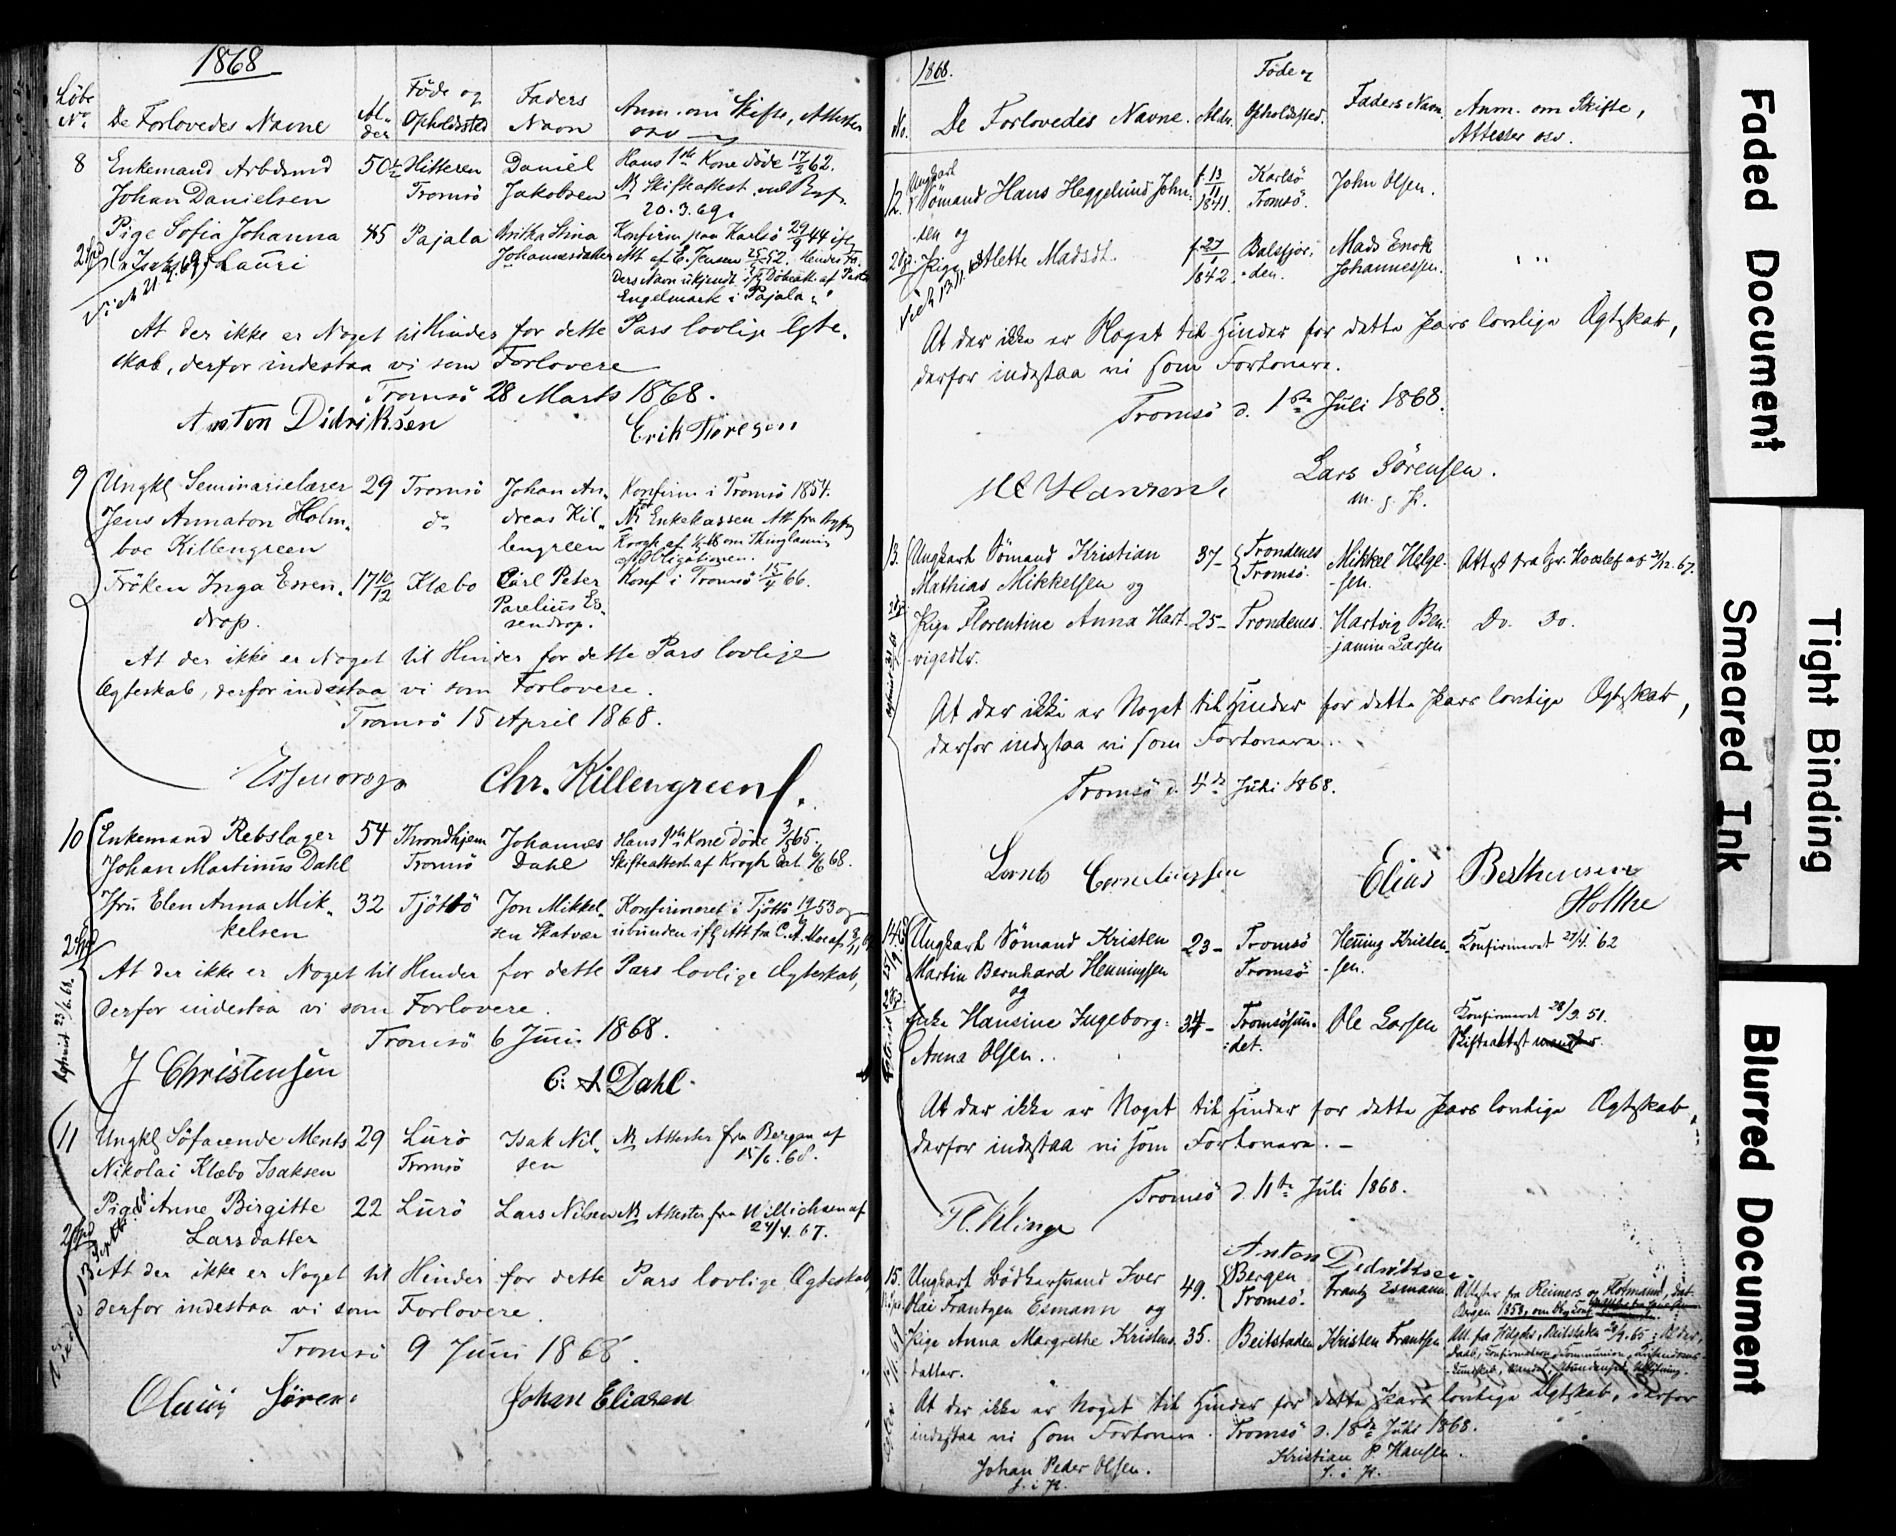 1868
Löbe No. De Forlovedes Navne Alder Föde og Opholdssted Faders Navn Anm. om Skifte, Attester osv
8 Enkemand Arbdsmd 50½ Hitteren Daniel Hans 1ste Kone döde 62.
Johan Danielsen Tromsö Jakobsen NB Skifteattest
20.3.69.
Pige Sofia Johanna 45 Pajala Britha Stina Konfirm. paa Karlsö 29/9 44
Lauri Johannesdatter Att af C. Jensen 52. Hendes Fa-
ders Navn ukjendt
Engelmark i Pajala
At der ikke er Noget til Hinder for dette Pars lovlige Ægte-
skab, derfor indestaa vi som Forlovere
Tromsö 28 Marts 1868.
Anton Didriksen Erik
9 Ungkl Seminarielærer 29 Tromsö Johan An- Konfirm i Tromsö 1854.
Jens Annaton Holm- do dreas Kil- NB Enkekassen Att fra
boe Killengreen lengreen Krogh af om Thinglæsning
af Obligationen.
Fröken Inga Essen- 17 10/12 Klæbo Carl Peter Konf i Tromsö 66.
drop. Parelius Es-
sendrop.
At der ikke er Noget til Hinder for dette Pars lovlige
Ægteskab, derfor indestaa vi som Forlovere.
Tromsö 15 April 1868.
Essendrop Chr. Killengreen
10 Enkemand Rebslager 54 Throndhjem Johannes Hans 1ste Kone döde 65.
Johan Martinus Dahl Tromsö Dahl Skifteattest af Krogh dat. 6/6 68.
Jfru Elen Anna Mik- 32 Tjöttö Jon Mikkel- Konfirmeret i Tjöttö 53 og
kelsen sen Skatvær ubunden
At der ikke er Noget til Hinder for dette Pars lovlige Ægteskab,
derfor indestaa vi som Forlovere.
Tromsö 6 Juni 1868.
J Christensen C. A Dahl
11 Ungkl Söfarende Ments 29 Lurö Isak Nil- NB Attester fra Bergen af
Nikolai Klæbo Isaksen Tromsö sen 15/6. 68.
Pige Anne Birgitte 22 Lurö Lars Nilsen NB Attester fra Willichsen af
Larsdatter 24/4. 67.
At der ikke er Noget til Hinder for dette Pars lovlige Ægteskab,
derfor indestaa vi som Forlovere.
Tromsö 9 Juni 1868.
Johan Eliasen
1868.
No. De Forlovedes Navne. Alder. Föde og Opholdssted. Faders Navn. Anm. om Skifte, Attester osv.
12. Ungkarl Sömand Hans Heggelund John- f. 13/11 1841. Karlsö Tromsö. John Olsen.
sen og
Pige Alette Madsdt. f. 27/1 1842. Balsfjor- den. Mads Enok Johannessen. " "
At der ikke er Noget til Hinder for dette Pars lovlige Ægteskab,
derfor indestaa vi som Forlovere.
Tromsö d. 1ste Juli 1868.
Hansen Lars Sörensen.
m. p. P.
13. Ungkarl Sömand Kristian 37- Trondenes Mikkel Helge- Attest fra Hr. af 31/12. 67.
Mathias Mikkelsen og Tromsö. sen.
Pige Florentine Anna Hart- 25- Trondenes. Hartvig Ben- Do. Do.
vigsdtr. jamin Larsen
At der ikke er Noget til Hinder for dette Pars lovlige Ægteskab,
derfor indestaa vi som Forlovere.
Tromsö d. 4de Juli 1868.
Lornts Corneliussen Elias Bertheusen
Holthe
14. Ungkarl Sömand Kristen 23- Tromsö Henning Kristen- Konfirmeret 27/4. 62
Martin Bernhard Henningsen Tromsö sen.
og
Enke Hansine Ingeborg 34- Tromsösun- Ole Larsen Konfirmeret 28/9. 51.
Anna Olsen. det. Skifteattest mangler.
At der ikke er Noget til Hinder for dette Pars lovlige Ægteskab,
derfor indestaa vi som Forlovere. -
Tromsö d. 11te Juli 1868.
Fl. Klinge
Anton Didriksen
15. Ungkarl Bödkersvend Iver 49. Bergen Frantz Esmann. Attester fra Reimers og Hofmann, dat.
Frantzen Esmann og Tromsö. Bergen 1858,
Pige Anna Margrethe Kristens- 35. Beitstaden Kristen Frantsen Att. fra Beitstaden 65: Alder,
datter. Daab, Confirmation, Communion, Kristendoms-
kundskab, Vandel,
At der ikke er Noget til Hinder for dette Pars lovlige Ægteskab, derfor
indestaa vi som Forlovere. Tromsö d. 18de Juli 1868.
Johan Peder Olsen. Kristian P. Hansen.
Faded Document
Smeared Ink
Tight Binding
Blurred Document